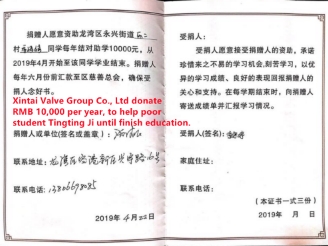 捐赠人愿意资助龙湾区永兴街道
村 同学每年结对助学10000元，从
2019年4月开始至该同学学业结束。捐赠人
每年六月份前汇款至区慈善总会，确保受
捐人念好书。
Xintai Valve Group Co., Ltd donate
RMB 10,000 per year, to help poor
student Tingting Ji until finish education.
捐赠人或单位(签名或盖章)：
联系地址：
联系电话：
2019年 4月22日
受捐人：
受捐人愿意接受捐赠人的资助，承诺
珍惜来之不易的学习机会，刻苦学习，以优
异的学习成绩、良好的表现回报捐赠人的
关心和支持。在每学期结束时，向捐赠人
寄送成绩单并汇报学习情况。
受捐人(签名)：
家庭住址：
联系电话：
(本证书一式三份)
2019年 月 日